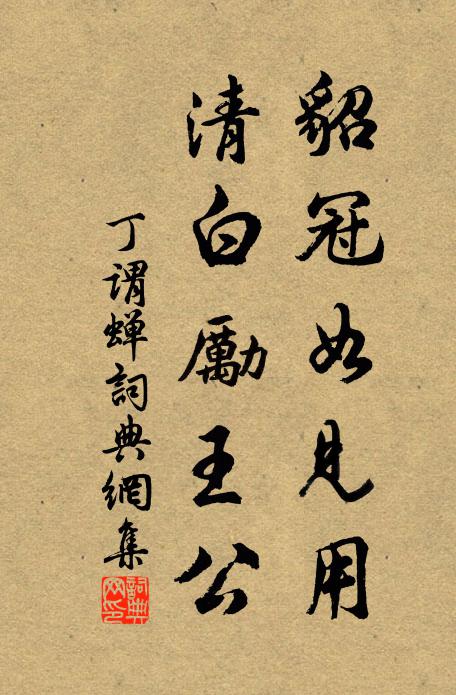 貂冠如見用
清白勵王公
丁謂蟬詞典網集
詞典網印